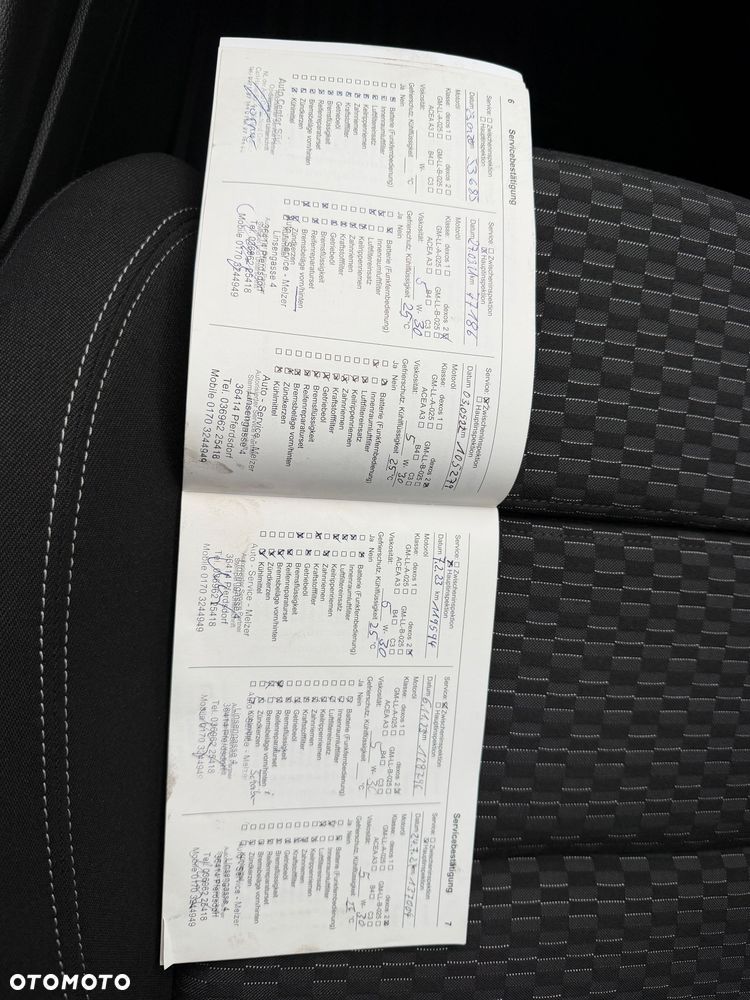 6
Servicebestätigung
Service: ☐ Zwischeninspektion
☐ Hauptinspektion
Datum km 53685
Motoröl
Klasse: dexos 1 ☐ dexos 2 ☐
GM-LL-A-025 ☐ GM-LL-B-025 ☐
ACEA A3 ☐ B4 ☐ C3 ☐
Viskosität: W-
Gefrierschutz, Kühlflüssigkeit °C
Ja Nein
Batterie (Funkfernbedienung)
Innenraumluftfilter
Luftfiltereinsatz
Keilrippenriemen
Zahnriemen
Kraftstofffilter
Getriebeöl
Bremsflüssigkeit
Reifenreparaturset
Bremsbeläge vorn/hinten
Zündkerzen
Kühlmittel
Service: ☐ Zwischeninspektion
☒ Hauptinspektion
Datum km 77186
Motoröl
Klasse: dexos 1 ☐ dexos 2 ☒
GM-LL-A-025 ☐ GM-LL-B-025 ☐
ACEA A3 ☐ B4 ☐ C3 ☐
Viskosität: 5 W- 30
Gefrierschutz, Kühlflüssigkeit 25 °C
Ja Nein
Batterie (Funkfernbedienung)
Innenraumluftfilter
Luftfiltereinsatz
Keilrippenriemen
Zahnriemen
Kraftstofffilter
Getriebeöl
Bremsflüssigkeit
Reifenreparaturset
Bremsbeläge vorn/hinten
Zündkerzen
Kühlmittel
Auto - Service - Melzer
Linsengasse 4
36414 Pferdsdorf
Tel. 036962 25418
Mobile 0170 3244949
Service: ☒ Zwischeninspektion
☐ Hauptinspektion
Datum 03.02.22 km 105279
Motoröl
Klasse: dexos 1 ☐ dexos 2 ☒
GM-LL-A-025 ☐ GM-LL-B-025 ☐
ACEA A3 ☐ B4 ☐ C3 ☐
Viskosität: 5 W- 30
Gefrierschutz, Kühlflüssigkeit 25 °C
Ja Nein
Batterie (Funkfernbedienung)
Innenraumluftfilter
Luftfiltereinsatz
Keilrippenriemen
Zahnriemen
Kraftstofffilter
Getriebeöl
Bremsflüssigkeit
Reifenreparaturset
Bremsbeläge vorn/hinten
Zündkerzen
Kühlmittel
Auto - Service - Melzer
Linsengasse 4
36414 Pferdsdorf
Tel. 036962 25418
Mobile 0170 3244949
Servicebestätigung
7
Service: ☐ Zwischeninspektion
☒ Hauptinspektion
Datum 7.2.23 km 119594
Motoröl
Klasse: dexos 1 ☐ dexos 2 ☒
GM-LL-A-025 ☐ GM-LL-B-025 ☐
ACEA A3 ☐ B4 ☐ C3 ☐
Viskosität: 5 W- 30
Gefrierschutz, Kühlflüssigkeit 25 °C
Ja Nein
Batterie (Funkfernbedienung)
Innenraumluftfilter
Luftfiltereinsatz
Keilrippenriemen
Zahnriemen
Kraftstofffilter
Getriebeöl
Bremsflüssigkeit
Reifenreparaturset
Bremsbeläge vorn/hinten
Zündkerzen
Kühlmittel
Auto - Service - Melzer
Linsengasse 4
36414 Pferdsdorf
Tel. 036962 25418
Mobile 0170 3244949
Service: ☒ Zwischeninspektion
☐ Hauptinspektion
Datum km
Motoröl
Klasse: dexos 1 ☐ dexos 2 ☒
GM-LL-A-025 ☐ GM-LL-B-025 ☐
ACEA A3 ☐ B4 ☐ C3 ☐
Viskosität: 5 W- 30
Gefrierschutz, Kühlflüssigkeit °C
Ja Nein
Batterie (Funkfernbedienung)
Innenraumluftfilter
Luftfiltereinsatz
Keilrippenriemen
Zahnriemen
Kraftstofffilter
Getriebeöl
Bremsflüssigkeit
Reifenreparaturset
Bremsbeläge vorn/hinten
Zündkerzen
Auto - Service - Melzer
Linsengasse 4
36414 Pferdsdorf
Tel. 036962 25418
Mobile 0170 3244949
Service: ☐ Zwischeninspektion
☒ Hauptinspektion
Datum km
Motoröl
Klasse: dexos 1 ☐ dexos 2 ☒
GM-LL-A-025 ☐ GM-LL-B-025 ☐
ACEA A3 ☐ B4 ☐ C3 ☐
Viskosität: 5 W- 30
Gefrierschutz, Kühlflüssigkeit °C
Ja Nein
Batterie (Funkfernbedienung)
Innenraumluftfilter
Luftfiltereinsatz
Keilrippenriemen
Zahnriemen
Kraftstofffilter
Getriebeöl
Bremsflüssigkeit
Reifenreparaturset
Bremsbeläge vorn/hinten
Zündkerzen
Auto - Service - Melzer
Linsengasse 4
36414 Pferdsdorf
Tel. 036962 25418
Mobile 0170 3244949
OTOMOTO